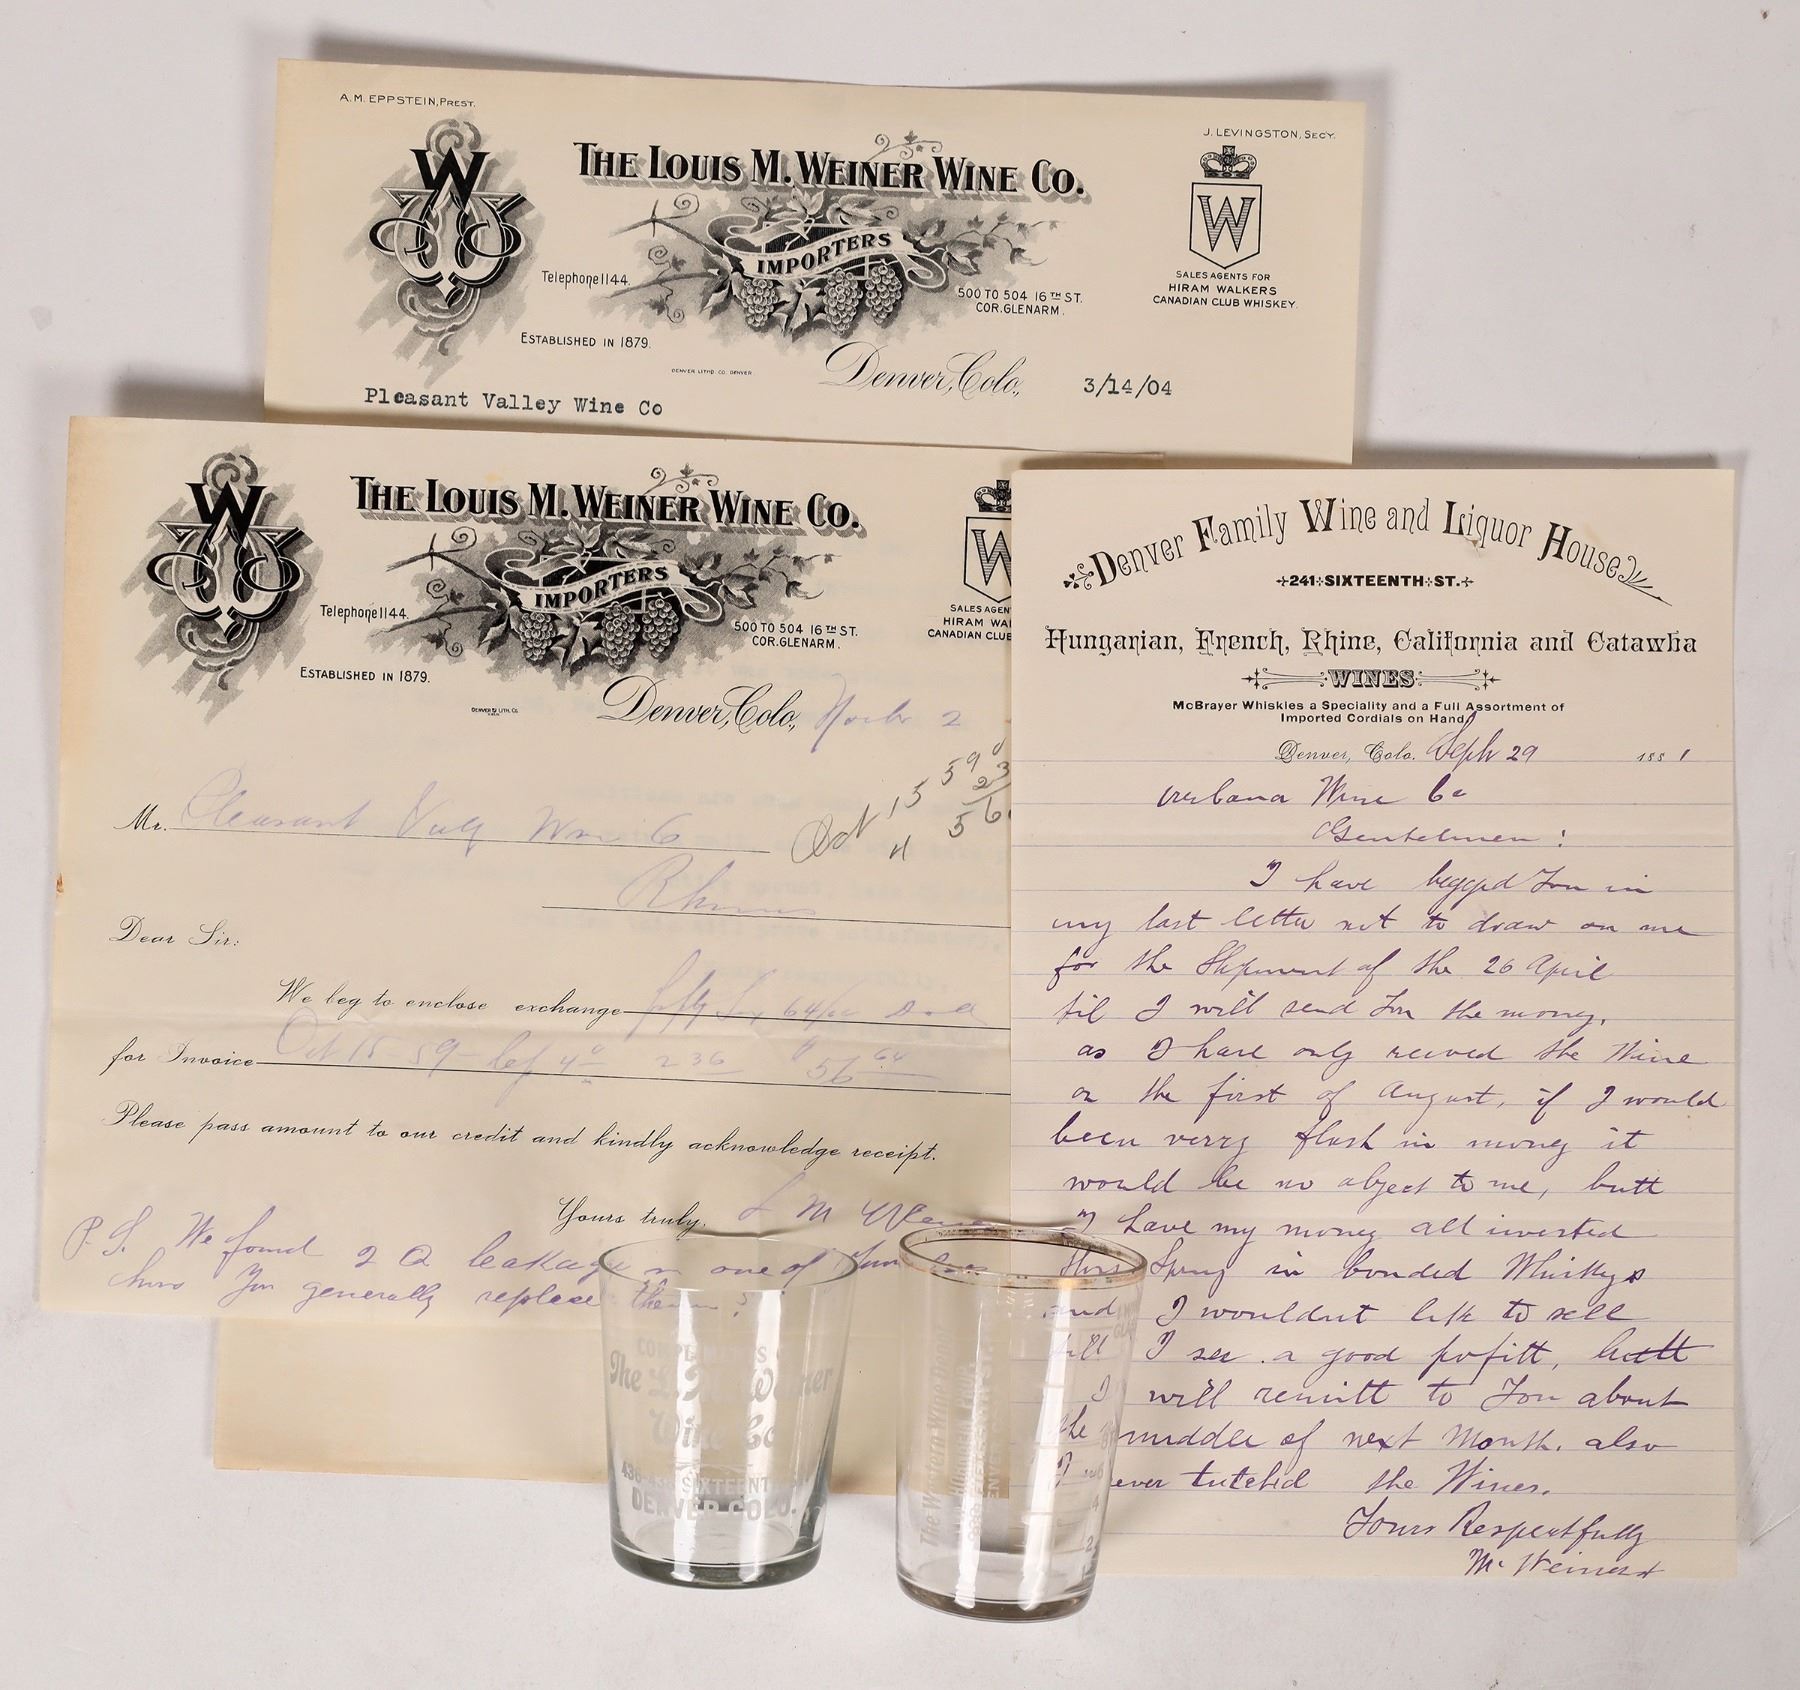 A.M. EPPSTEIN, PREST.
J. LEVINGSTON, SEC'Y.
THE LOUIS M. WEINER WINE CO.
W
IMPORTERS
Telephone 1144.
500 TO 504 16TH ST.
COR. GLENARM.
ESTABLISHED IN 1879.
W
SALES AGENTS FOR
HIRAM WALKERS
CANADIAN CLUB WHISKEY.
DENVER LITHO. CO. DENVER
Denver, Colo., 3/14/04
Pleasant Valley Wine Co
THE LOUIS M. WEINER WINE CO.
W
IMPORTERS
Telephone 1144.
500 TO 504 16TH ST.
COR. GLENARM.
ESTABLISHED IN 1879.
W
SALES AGEN
HIRAM WA
CANADIAN CLUB
Denver, Colo., 2
Mr. Pleasant Vally Wine Co
Oct 15 59
4
56
Rhims
Dear Sir:
We beg to enclose exchange fifty Six 64/00 Doll
for Invoice Oct 15 59 - 4º 2 36 $ 56 64
Please pass amount to our credit and kindly acknowledge receipt.
Yours truly, L M Weiner
P.S. We found 2 leakage in one of
You generally replace them?
Denver Family Wine and Liquor House
241 SIXTEENTH ST.
Hungarian, French, Rhine, California and Catawba
WINES
McBrayer Whiskies a Speciality and a Full Assortment of
Imported Cordials on Hand.
Denver, Colo. Sept 29 1881
Urbana Wine Co
Gentelmen!
I have begged You in
my last letter not to draw on me
for the Shipment of the 26 April
til I will send You the money,
as I have only recived the Wine
on the first of August, if I would
been verry flush in money it
would be no object to me, butt
I have my money all invested
this Spring in bonded Whiskys
and I wouldnt like to sell
till I see a good pofitt, butt
I will remitt to You about
the middle of next Month. also
I never tutched the Wines.
Yours Respectfully
M. Weiner
COMPLIMENTS OF
The L. M. Weiner
Wine Co
436-438 SIXTEENTH
DENVER COLO.
The Western Wine
4
2